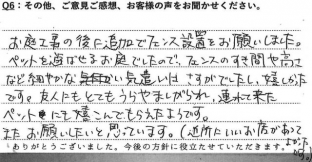 Q6：その他、ご意見ご感想、お客様の声をお聞かせください。
お庭工事の後に追加でフェンス設置をお願いしました。
ペットを遊ばせるお庭でしたので、フェンスのすき間や高さ
など細やかな気遣いはさすがでしたし、嬉しかった
です。友人にもとてもうらやましがられ、連れて来た
ペットにも喜こんでもらえたようです。
またお願いしたいと思っています。（近所にいいお店があって
よかった
ありがとうございました。今後の方針に役立たせていただきます。